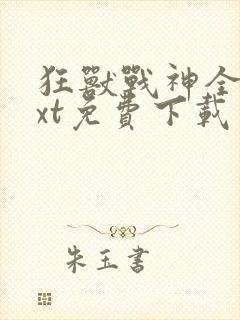 狂獸戰神全
xt免費下載
朱玉書